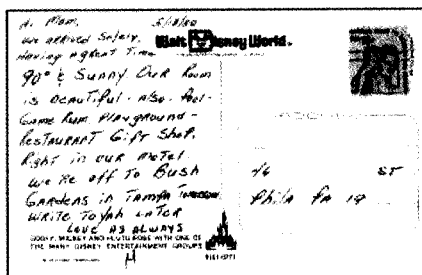 Hi Mom, 5/2/80
We arrived Safely.
Having a great Time
Walt Disney World.
90° & Sunny. Our Room
is Beautiful. Also. Pool-
Game Rum. Playground-
Restaurant Gift Shop.
Right in our Motel.
We're off To Bush
Gardens in Tampa
Write To Yah Later
Love As Always
GOOFY, MICKEY AND PLUTO POSE WITH ONE OF
THE MANY DISNEY ENTERTAINMENT GROUPS
ST
Phila PA 19